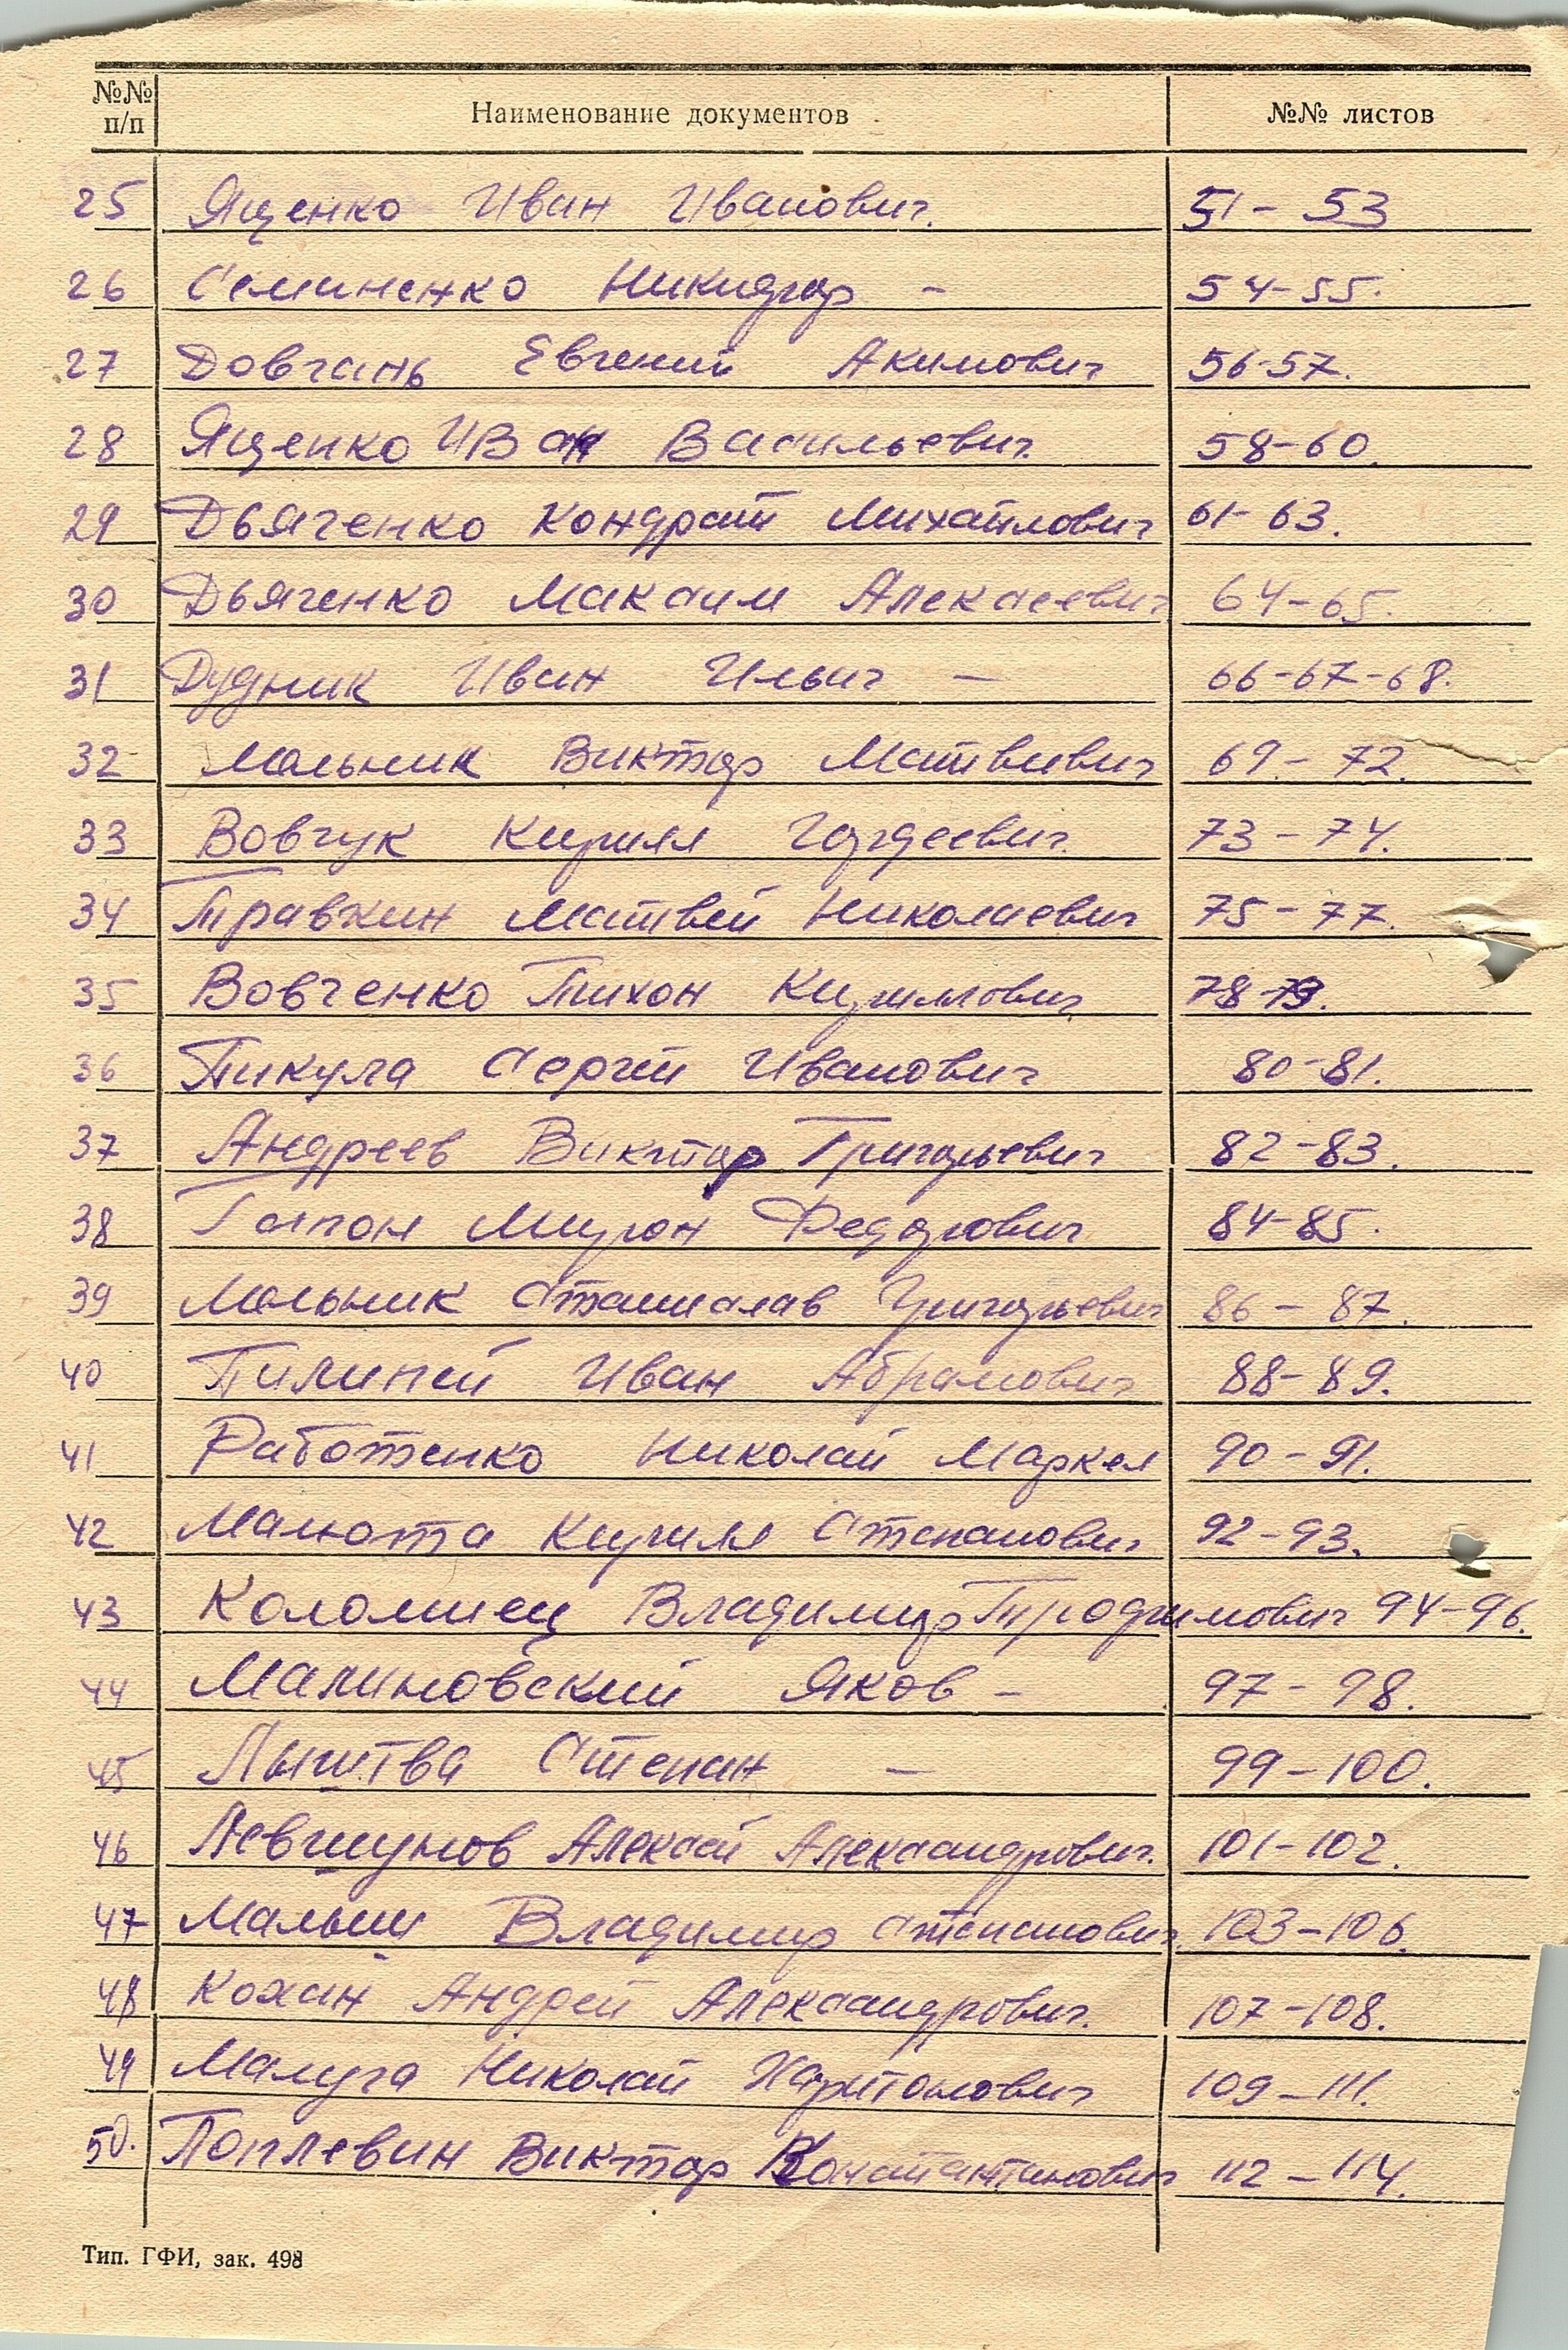 №№ п/п Наименование документов №№ листов
25 Ященко Иван Иванович. 51 - 53
26 Семиненко Никифор - 54-55.
27 Довгань Евгений Акимович 56-57.
28 Ященко Иван Васильевич 58-60.
29 Дьяченко Кондрат Михайлович 61-63.
30 Дьяченко Максим Алексеевич 64-65.
31 Дудник Иван Ильич - 66-67-68.
32 Мельник Виктор Матвивич 69 - 72.
33 Вовчук Кирилл Гордеевич. 73 - 74.
34 Травкин Матвей Николаевич 75 - 77.
35 Вовченко Тихон Кириллович 78-79.
36 Пикула Сергей Иванович 80-81.
37 Андреев Виктор Григорьевич 82-83.
38 Гапон Мирон Федорович 84-85.
39 Мельник Станислав Григорьевич 86 - 87.
40 Пилипей Иван Абрамович 88-89.
41 Работенко Николай Маркел 90-91.
42 Малюта Кирилл Степанович 92-93.
43 Коломиец Владимир Трофимович 94-96.
44 Малиновский Яков - 97 - 98.
45 Степан - 99-100.
46 Левшунов Алексей Александрович. 101-102.
47 Малыш Владимир Степанович 103-106.
48 Кохан Андрей Александрович. 107-108.
49 Малуга Николай Харитонович 109-111.
50. Поплевин Виктор Константинович 112-114.
Тип. ГФИ, зак. 498